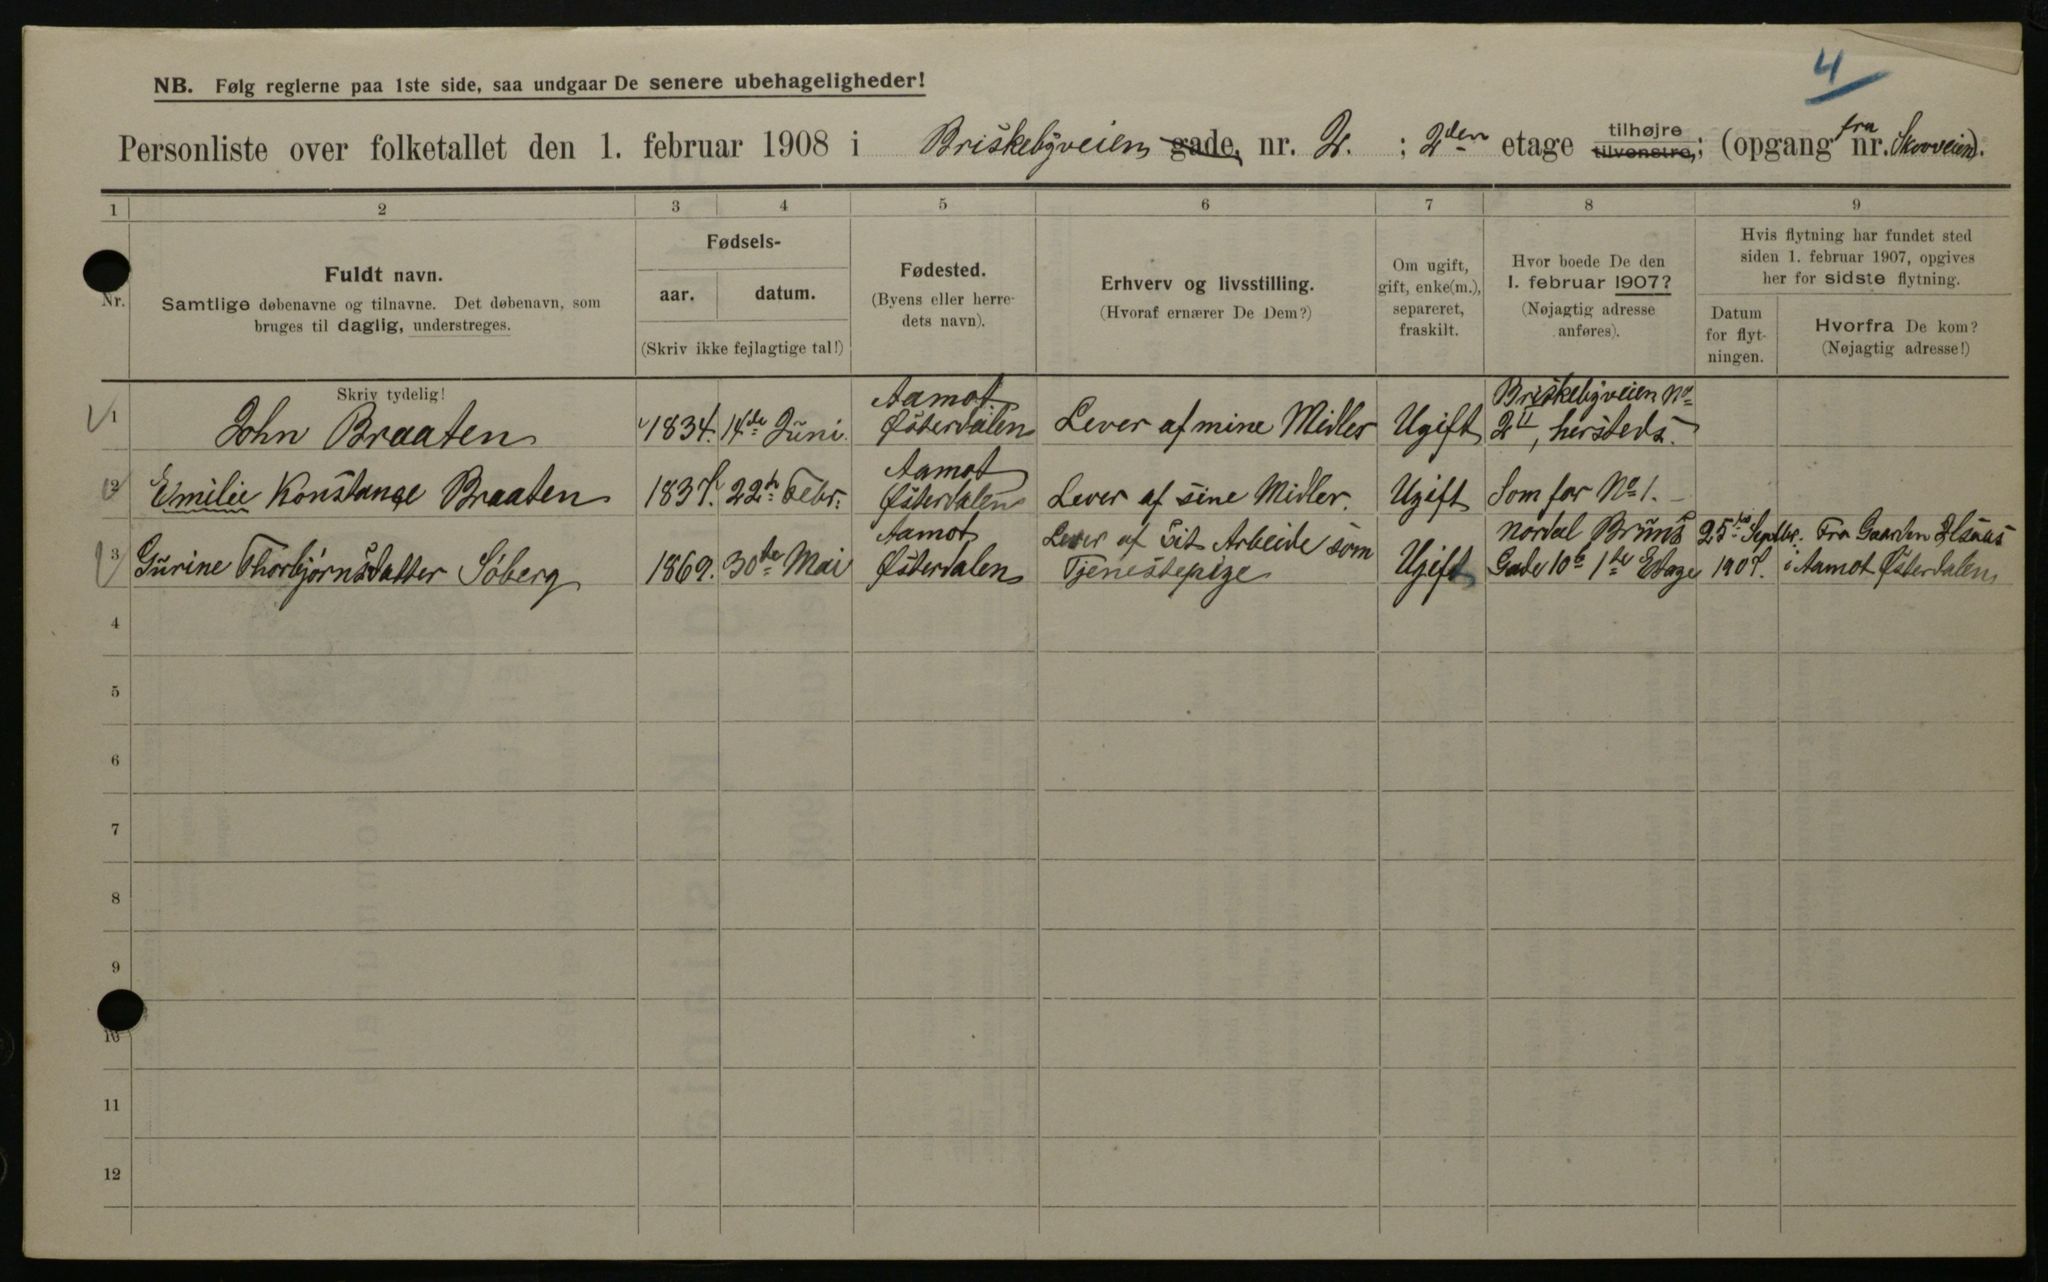 4
NB. Følg reglerne paa 1ste side, saa undgaar De senere ubehageligheder!
Personliste over folketallet den 1. februar 1908 i Briskebyveien gade, nr. 2. ; 2den etage tilhøjre tilvenstre; (opgang fra nr. Skovveien).
1 2 3 4 5 6 7 8 9
Nr.
Fuldt navn.
Samtlige døbenavne og tilnavne. Det døbenavn, som
bruges til daglig, understreges.
Fødsels-
aar. datum.
(Skriv ikke fejlagtige tal!)
Fødested.
(Byens eller herre-
dets navn).
Erhverv og livsstilling.
(Hvoraf ernærer De Dem?)
Om ugift,
gift, enke(m.),
separeret,
fraskilt.
Hvor boede De den
1. februar 1907?
(Nøjagtig adresse
anføres).
Hvis flytning har fundet sted
siden 1. februar 1907, opgives
her for sidste flytning.
Datum
for flyt-
ningen.
Hvorfra De kom?
(Nøjagtig adresse!)
Skriv tydelig!
1 John Braaten 1834. 14de Juni. Aamot Østerdalen Lever af mine Midler Ugift Briskebyveien No 2 II, hersteds.
2 Emilie Konstanse Braaten 1837. 22de Febr. Aamot Østerdalen Lever af sine Midler. Ugift Som for No 1. –
3 Gurine Thorbjørnsdatter Søberg 1869. 30te Mai Aamot Østerdalen Lever af Sit Arbeide som Tjenestepige Ugift Nordal Bruns Gade 10b 1ste Etage 25de Septbr. 1907. Fra Gaarden i Aamot Østerdalen
4
5
6
7
8
9
10
11
12